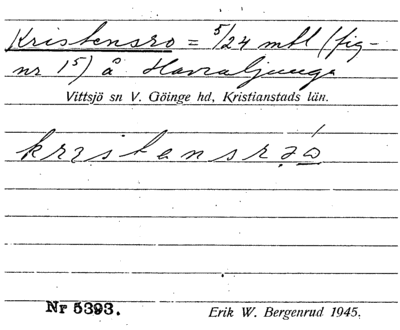 Kristensro = 5/24 mtl (fig-
nr 15) å Havraljunga
Vittsjö sn V. Göinge hd, Kristianstads län.
Nr 5393.
Erik W. Bergenrud 1945.